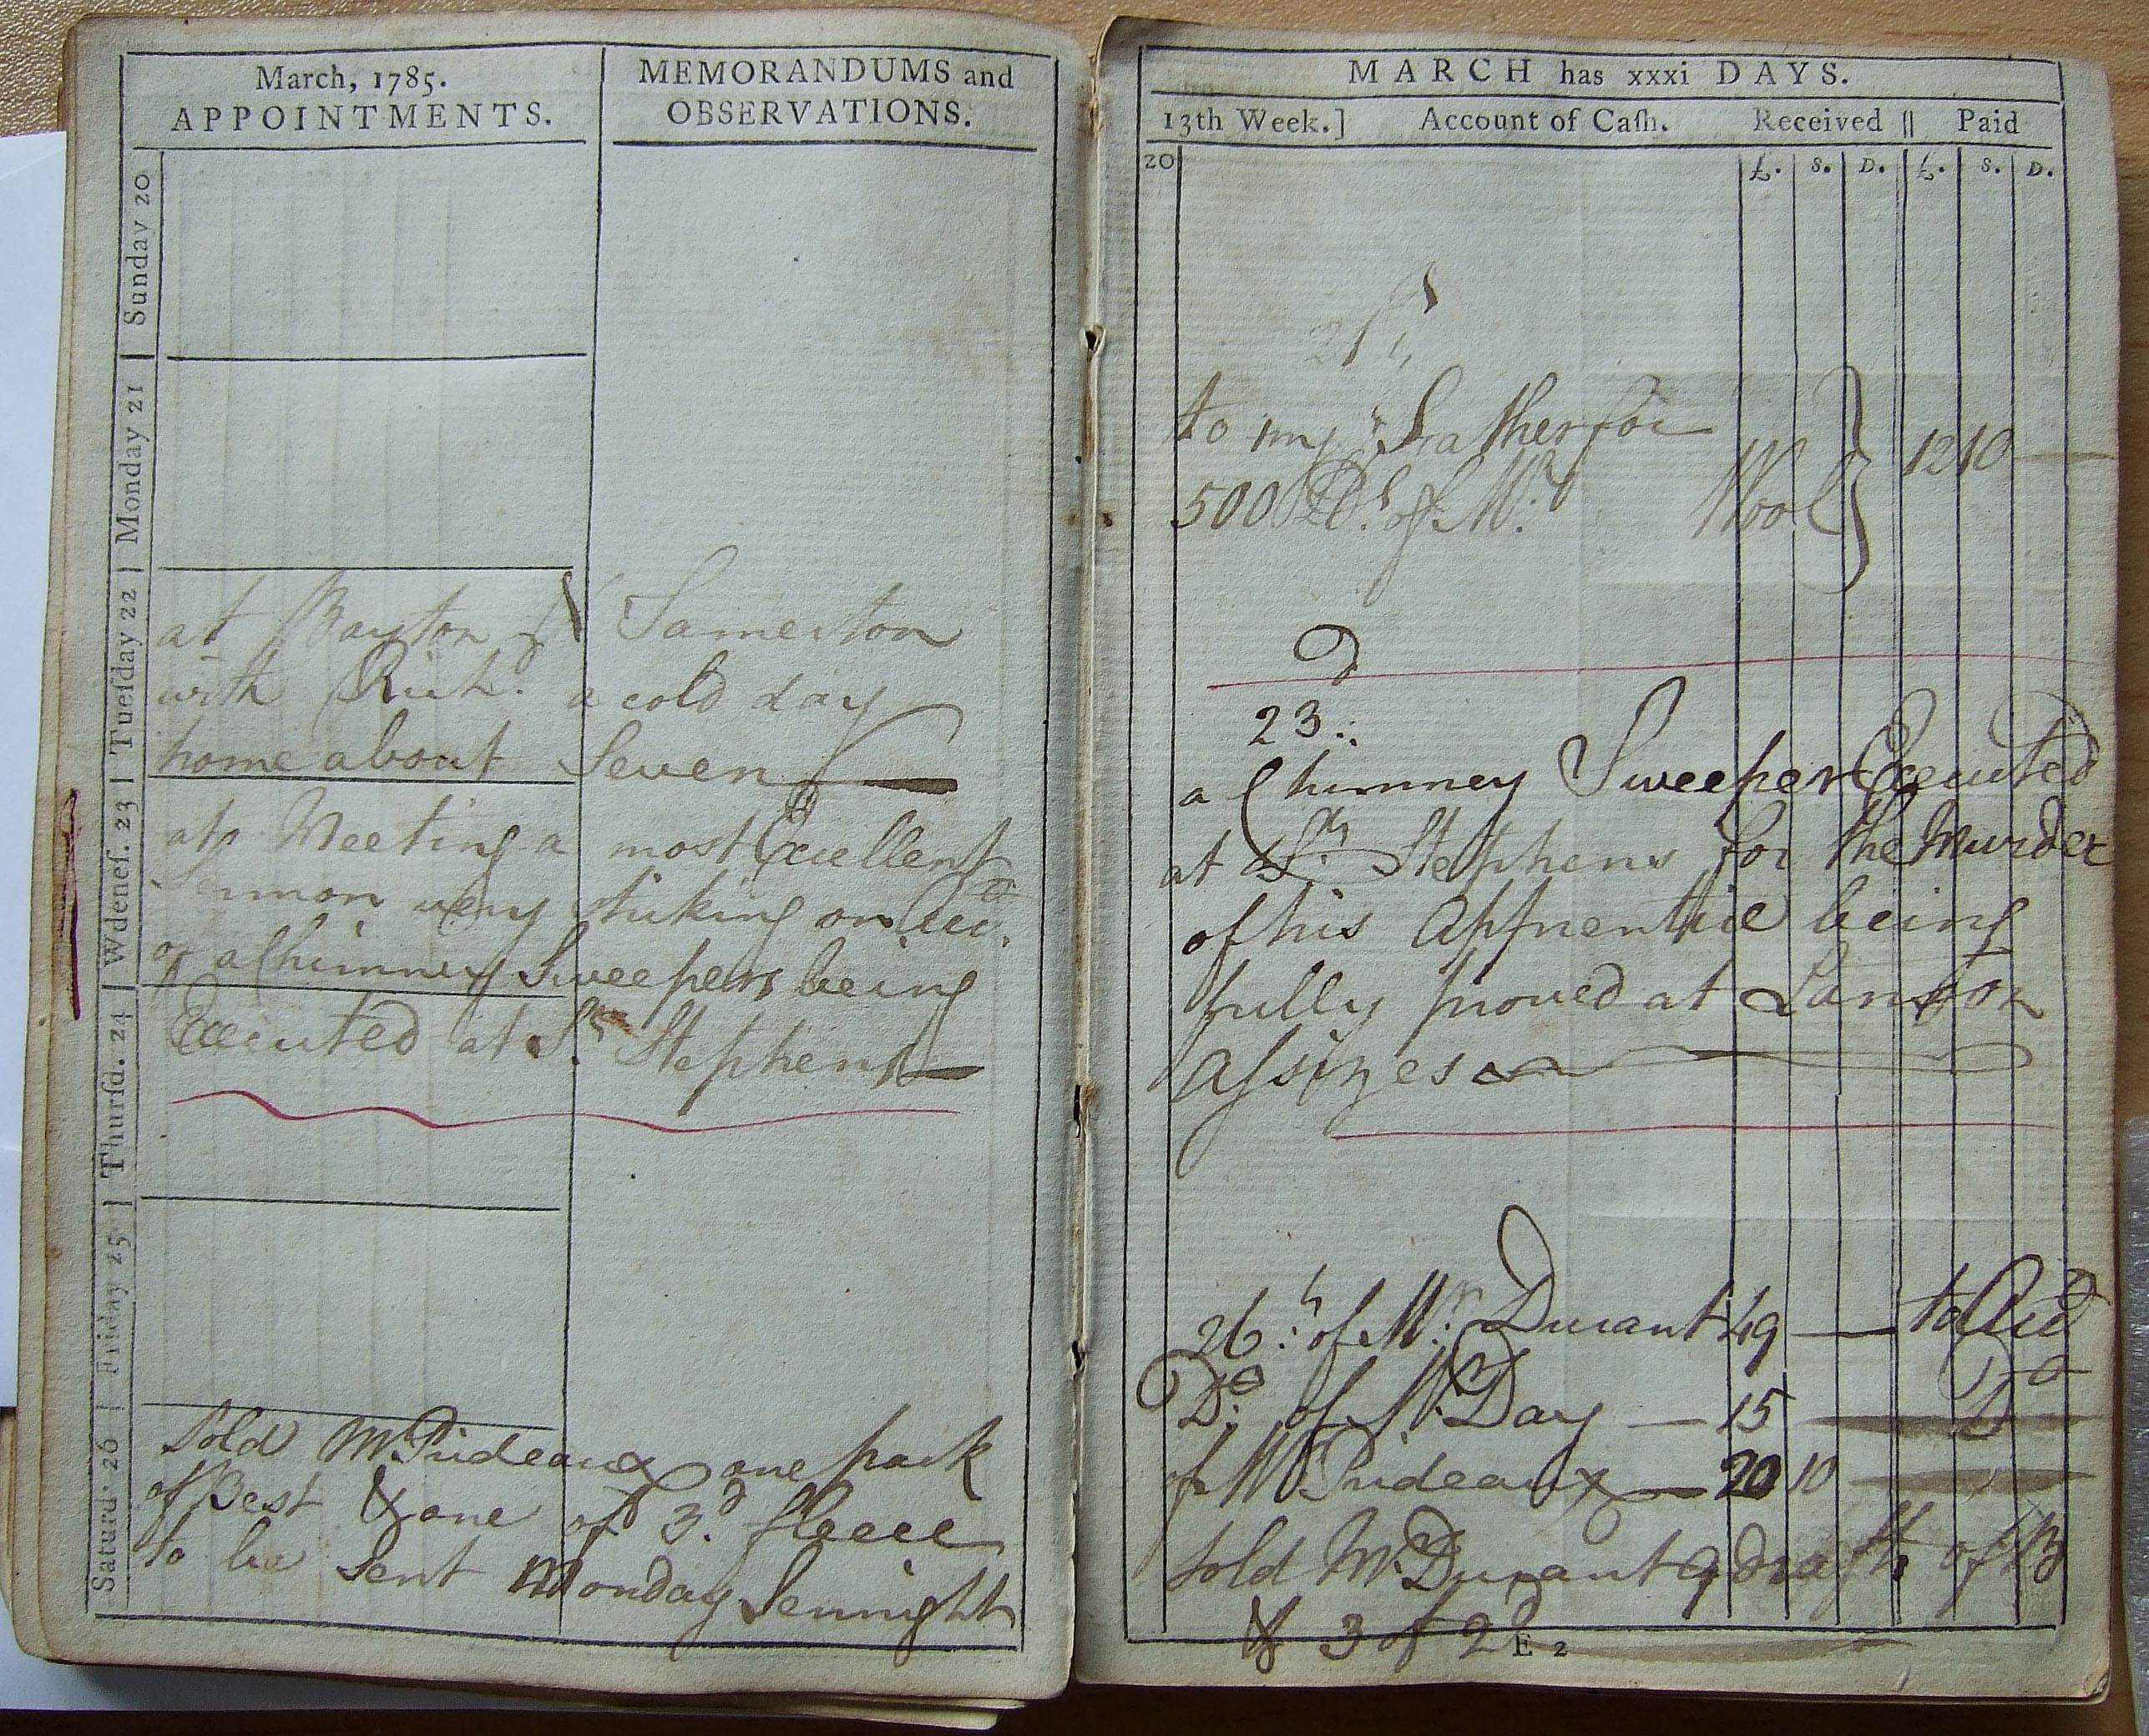 March, 1785.
APPOINTMENTS.
MEMORANDUMS and
OBSERVATIONS.
Sunday 20
Monday 21
Tueſday 22
at Bayton & Samerton
with Richd. a cold day
home about Seven
Wdeneſ. 23
at Meeting a most Excellent
Sermon very striking on acct.
of a Chimney Sweepers being
Thurſd. 24
Executed at St. Stephens
Friday 25
Saturd. 26
Sold Mr Prideaux one pack
of Best & one of 3d. fleece
to be Sent Monday Sennight
MARCH has xxxi DAYS.
13th Week.] Account of Caſh. Received || Paid
20 £. S. D. £. S. D.
21
to my Father for
500 lbs. of Wool 12 10
23d:
a Chimney Sweeper Executed
at St. Stephens for the Murder
of his Apprentice being
fully proved at Lanson
Assizes
26th: of Mr. Durant 49 — to Acct
Do of Mr. Day — 15 Do
of Mr Prideaux — 20 10
Sold Mr. Durant 9 drafts of B
& 3 of 2d
E 2